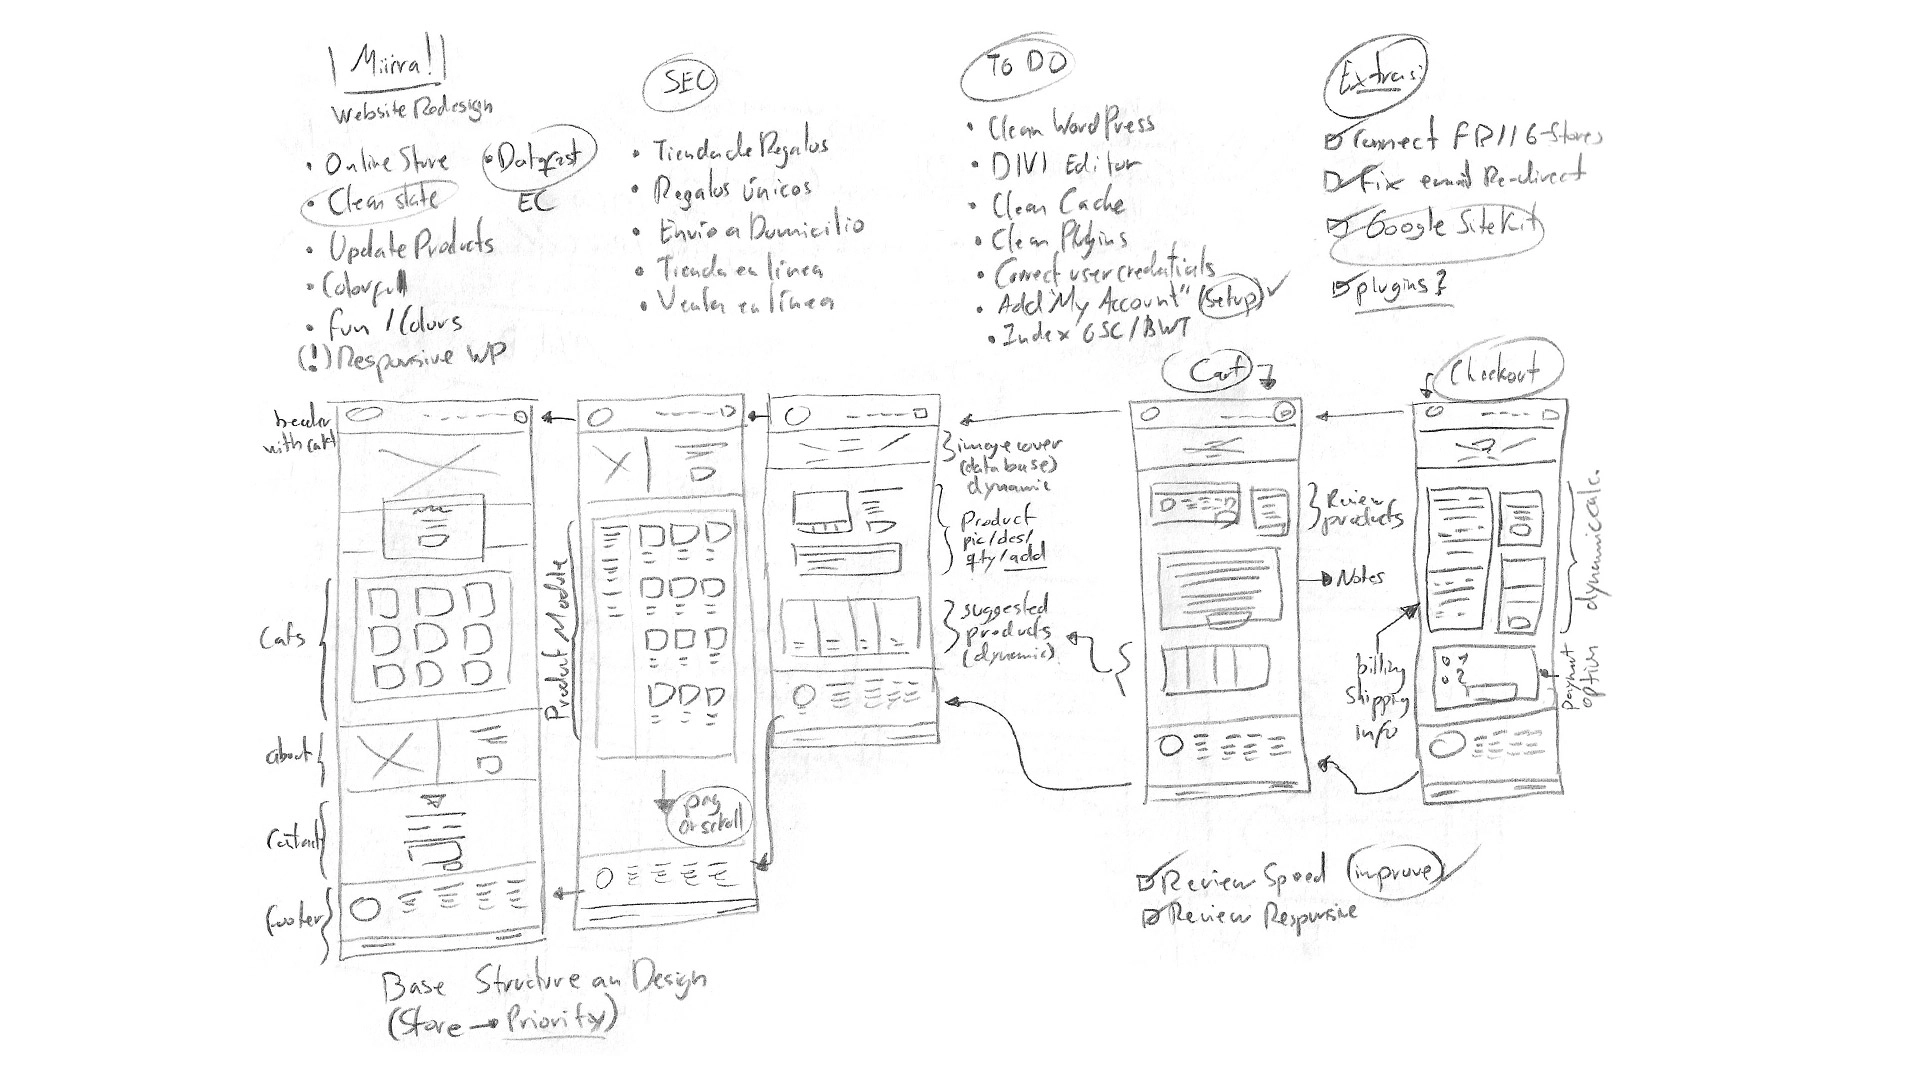 Miirva!
Website Redesign
• Online Store
• Datafast
EC
• Clean state
• Update Products
• Colorfull
• Fun / Colors
(!) Responsive WP
SEO
• Tienda de Regalos
• Regalos únicos
• Envío a Domicilio
• Tienda en línea
• Venta en línea
TO DO
• Clean WordPress
• DIVI Editor
• Clean Cache
• Clean Plugins
• Correct user credentials
• Add "My Account" (Setup)
• Index GSC/BWT
Extras:
Connect FB // G-Stores
Fix email Re-direct
Google SiteKit
plugins?
header
with cart
Cats
about
Contact
footer
Product Module
pag
or scroll
image cover
(database)
dynamic
Product
pic/des/
qty/add
suggested
products
(dynamic)
Cart
Review
products
Notes
Checkout
dynamic calc.
billing
Shipping
Info
payment
option
Review Speed (improve)
Review Responsive
Base Structure an Design
(Store → Priority)